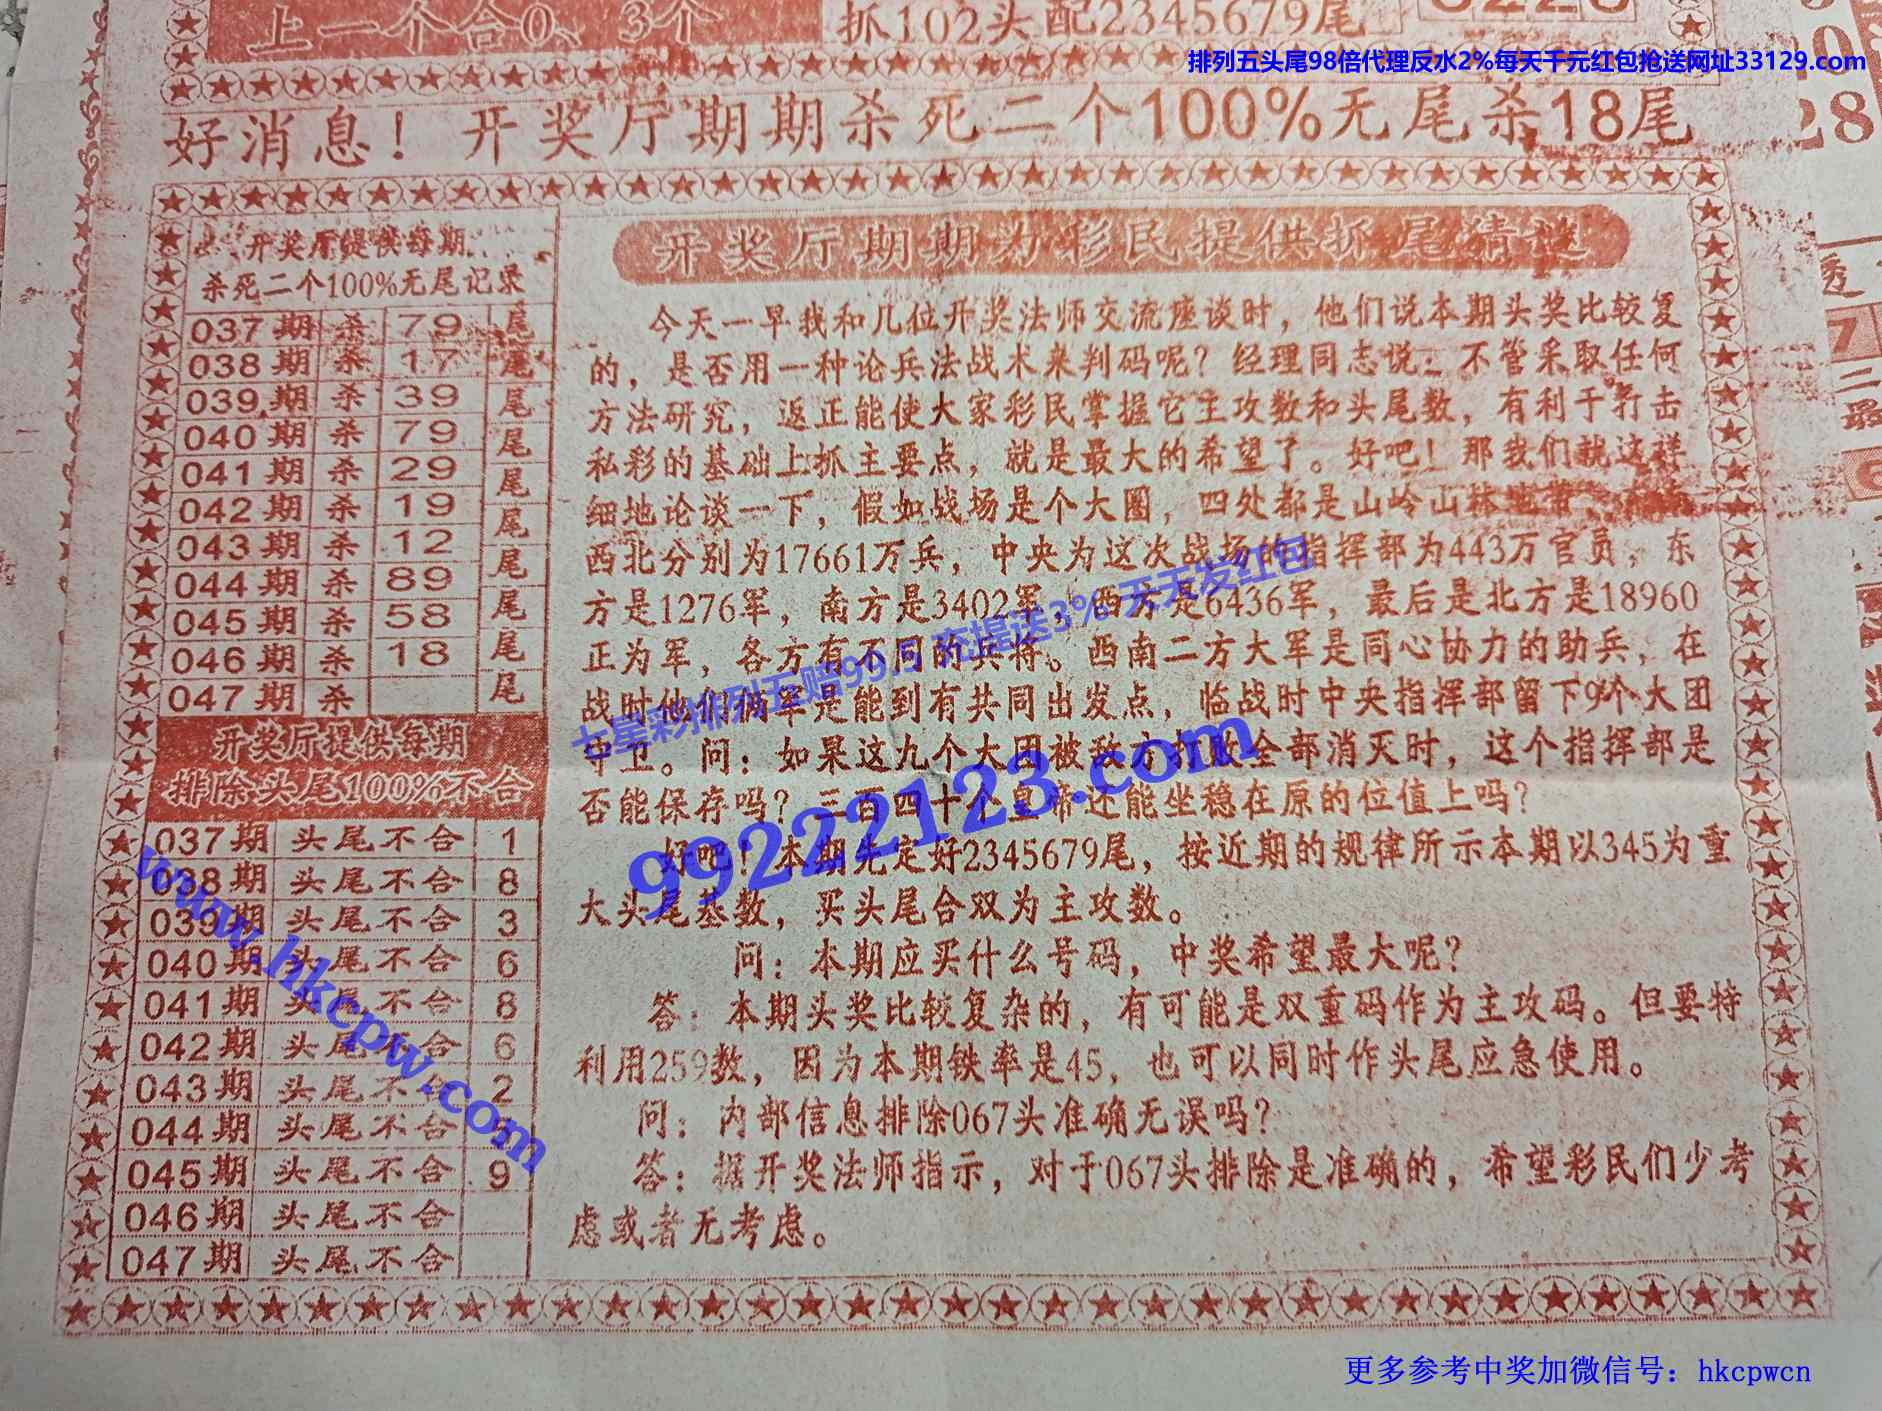 上一个合0、3个
抓102头配2345679尾
排列五头尾98倍代理反水2%每天千元红包抢送网址33129.com
好消息！开奖厅期期杀死二个100%无尾杀18尾
开奖厅提供每期
杀死二个100%无尾记录
037期 杀 79 尾
038期 杀 17 尾
039期 杀 39 尾
040期 杀 79 尾
041期 杀 29 尾
042期 杀 19 尾
043期 杀 12 尾
044期 杀 89 尾
045期 杀 58 尾
046期 杀 18 尾
047期 杀 尾
开奖厅提供每期
排除头尾100%不合
037期 头尾不合 1
038期 头尾不合 8
039期 头尾不合 3
040期 头尾不合 6
041期 头尾不合 8
042期 头尾不合 6
043期 头尾不 2
044期 头尾不合
045期 头尾不合 9
046期 头尾不合
047期 头尾不合
开奖厅期期为彩民提供抓尾猜谜
今天一早我和几位开奖法师交流座谈时，他们说本期头奖比较复
的，是否用一种论兵法战术来判码呢？经理同志说：不管采取任何
方法研究，返正能使大家彩民掌握它主攻数和头尾数，有利于打击
私彩的基础上抓主要点，就是最大的希望了。好吧！那我们就这样
细地论谈一下，假如战场是个大圈，四处都是山岭山林地带，
西北分别为17661万兵，中央为这次战场的指挥部为443万官员，东
方是1276军，南方是3402军，西方是6436军，最后是北方是18960
正为军，各方有不同的兵将。西南二方大军是同心协力的助兵，在
战时他们俩军是能到有共同出发点，临战时中央指挥部留下9个大团
中卫。问：如果这九个大团被敌方打败全部消灭时，这个指挥部是
否能保存吗？三百四十个皇帝还能坐稳在原的位值上吗？
好吧！本期先定好2345679尾，按近期的规律所示本期以345为重
大头尾基数，买头尾合双为主攻数。
问：本期应买什么号码，中奖希望最大呢？
答：本期头奖比较复杂的，有可能是双重码作为主攻码。但要特
利用259数，因为本期铁率是45，也可以同时作头尾应急使用。
问：内部信息排除067头准确无误吗？
答：据开奖法师指示，对于067头排除是准确的，希望彩民们少考
虑或者无考虑。
七星彩排列五赔99.5 充提送3% 天天发红包
99222123.com
www.hkcpw.com
更多参考中奖加微信号：hkcpwcn